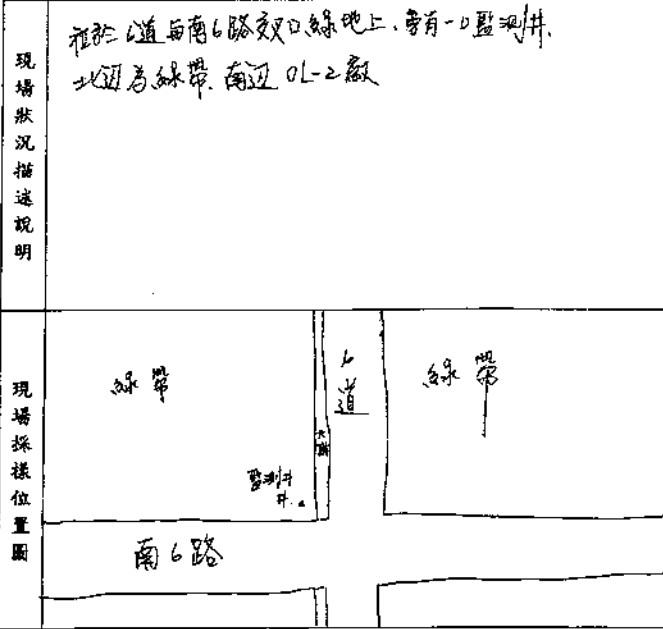 現場狀況描述說明
位於6道與南6路交叉口綠地上,旁有一口監測井.
北边為綠帶.南边OL-2廠
現場採樣位置圖
綠帶
6道
綠帶
監測井
井.
南6路